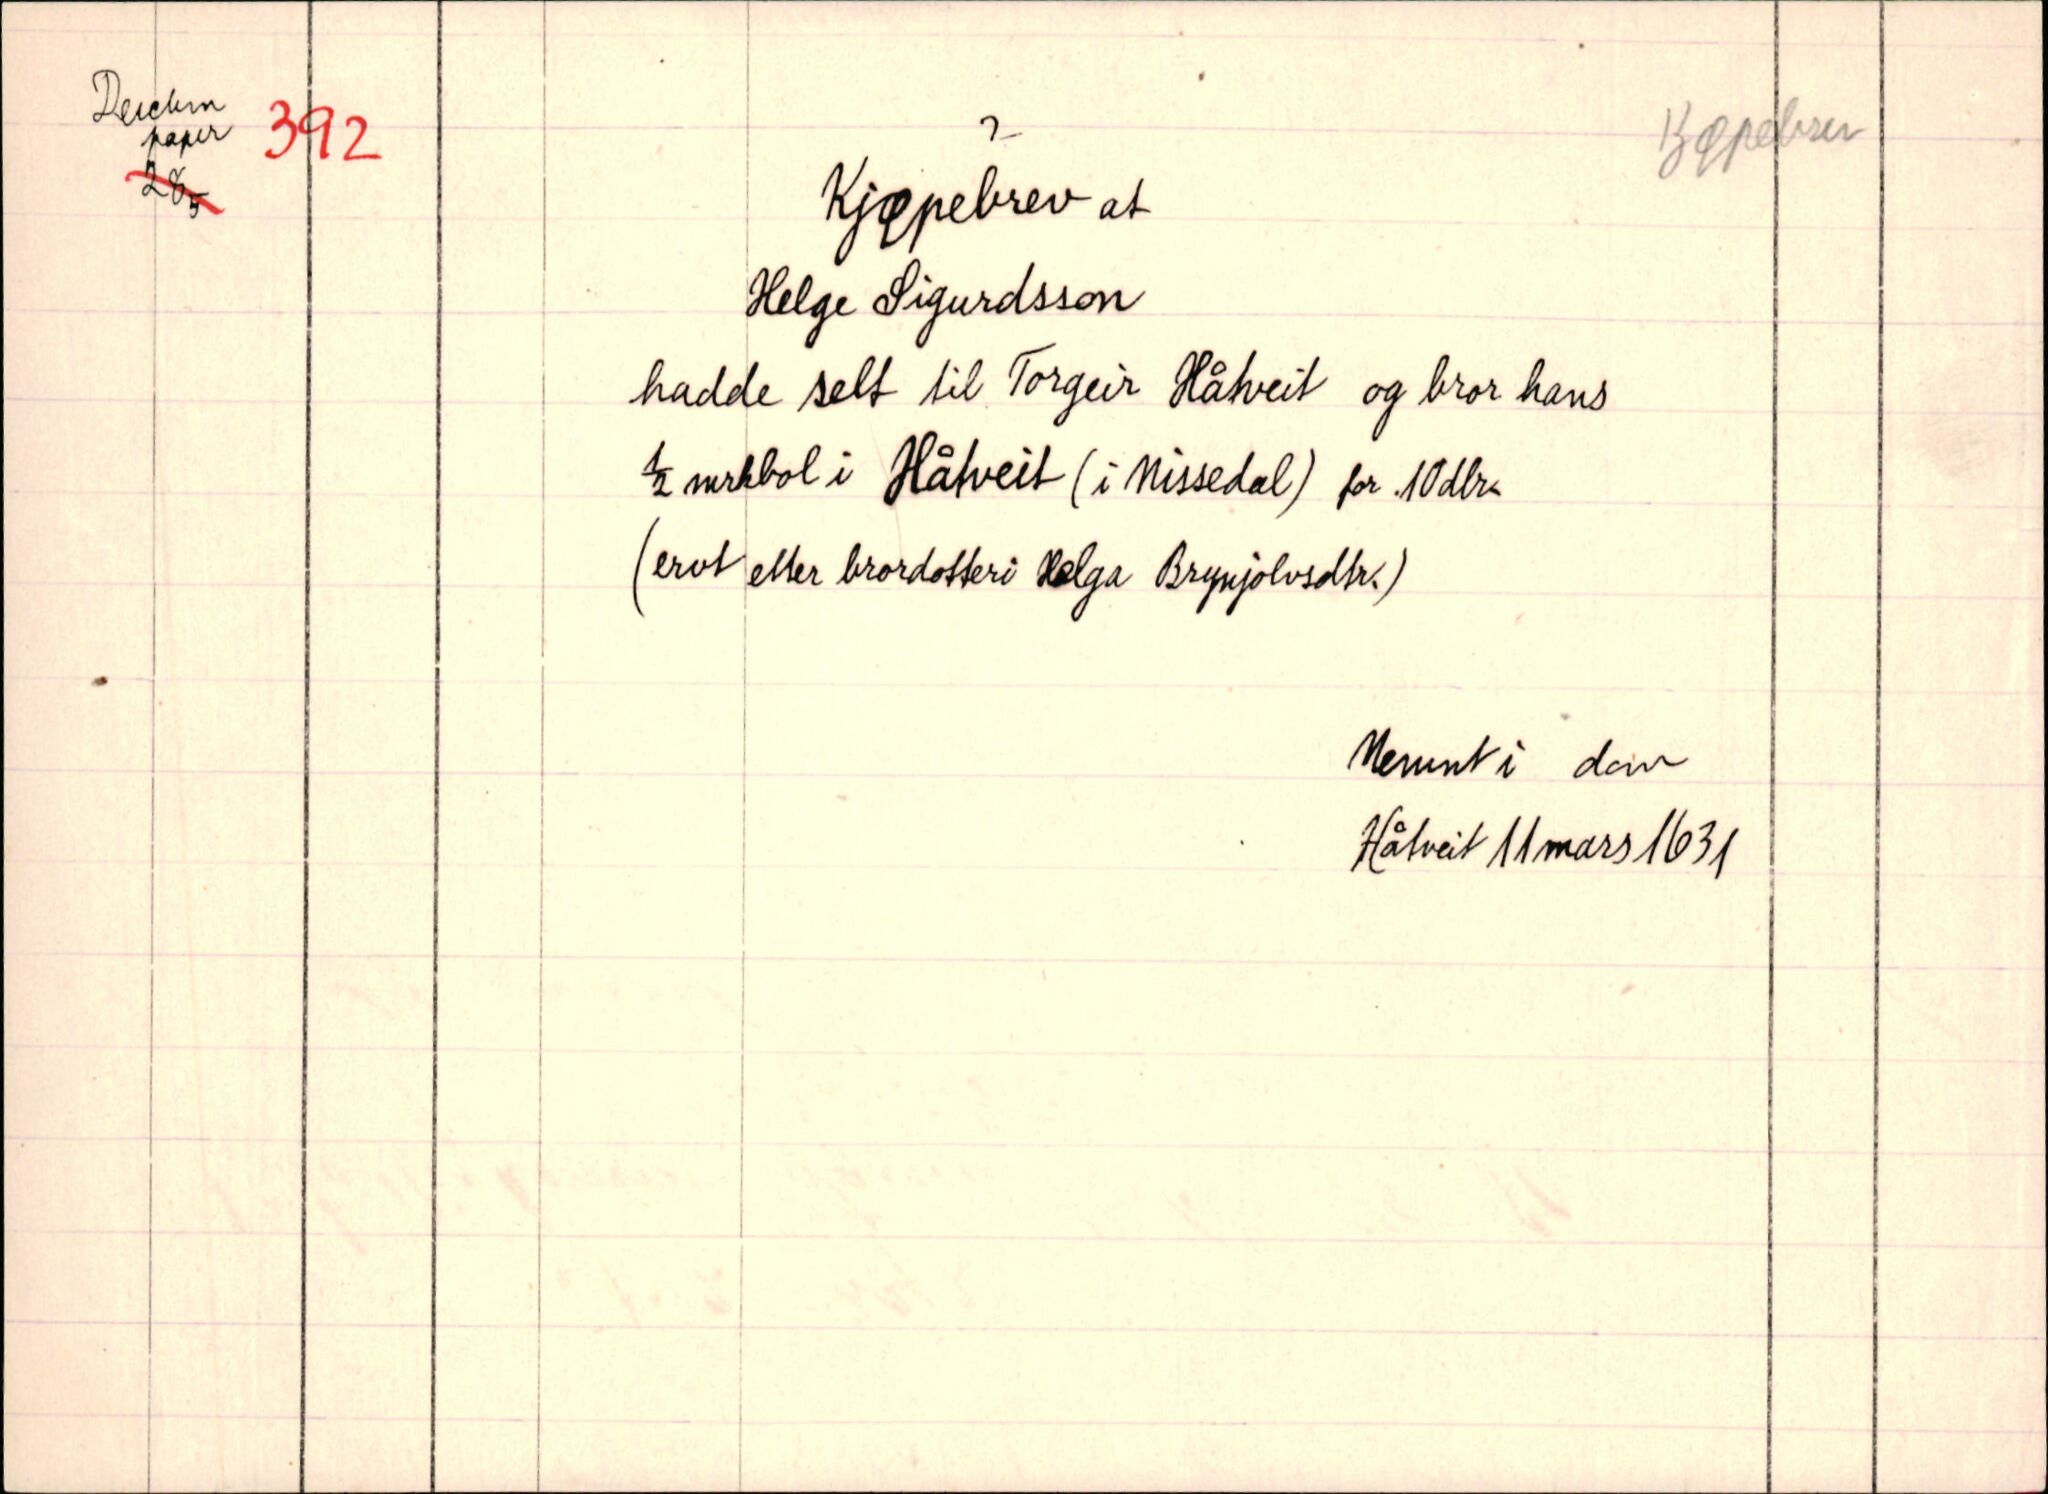 Deichm
papir
28 5
392
?
Kjøpebrev
Kjøpebrev at
Helge Sigurdsson
hadde selt til Torgeir Håtveit og bror hans
1/2 mrkbol i Håtveit (i Nissedal) for 10 dlr.
(ervt etter brordotteri Helga Brynjolvsdtr.)
Nemnt i dom
Håtveit 11 mars 1631